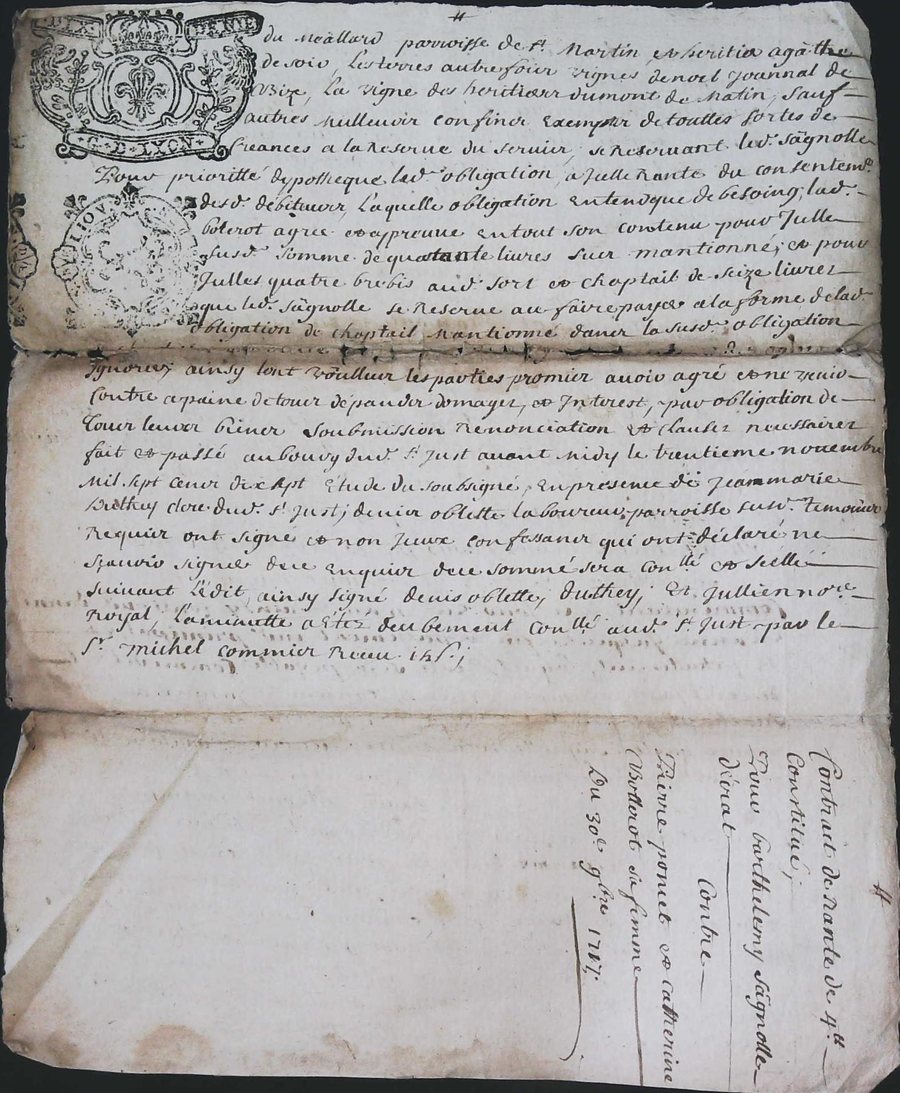 DIX DENIE
G. D. LYON
LIOV
du Meallard parroisse de st. Martin et heritier agathe
de soir, Les terres autrefoir vignes de noel Joannal de
Bize, La vigne des heritierr dumont de Matin, Sauf
autres Milleuir confiner Exempter de touttes sortes de
Creances a la Reserve du servier, se Reservant led. Sagnolle
Pour prioritté d'ypotheque lad. obligation, a Jelle Rante du consentemt.
desd. debiteurr, Laquelle obligation Entendque de besoing, lad.
boterot agree et apreuve En tout son contenu pour Jelle
susd. somme de quatante livres sur mantionné, et pour
Jelles quatre brebis aud. sort et chaptail de seize livrer
que led. Sagnolle se Reserve au faire payer a la forme de lad.
obligation de chaptail Mantionné danr la susd. obligation
ainsy lont voulleur les parties promier avoir agré et ne venir
Contre a peine de tour depander domager, et Interest, par obligation de
Tour leurr biener soubmission Renonciation et clauser necessairer
fait et passé au bourg dud. st. Just avant Midy le trentieme novembre
Mil sept cenr dix sept Etude du soubsigné, En presence de Jean marie
Duthey clerc dud. st. Just, denir oblette laboureur parroisse susd. temoinr
Requir ont signé et non Jceux confessanr qui ont declaré ne
Scavoir signer dece Enquir dece sommé sera conllé et scellé
suivant L'édit, ainsy signé denis oblette, duthey, Et Jullien nore.
Royal, La minutte a Eté deubement conlle. aud. st. Just par le
sr. michel commier Receu
Contrait de Rante de 4tt
Constitué,
Pour barthelemy Sagnolle
d'érat
Contre
Pierre pomet et catherine
Botterot sa femme
Du 30e. 9bre 1717,